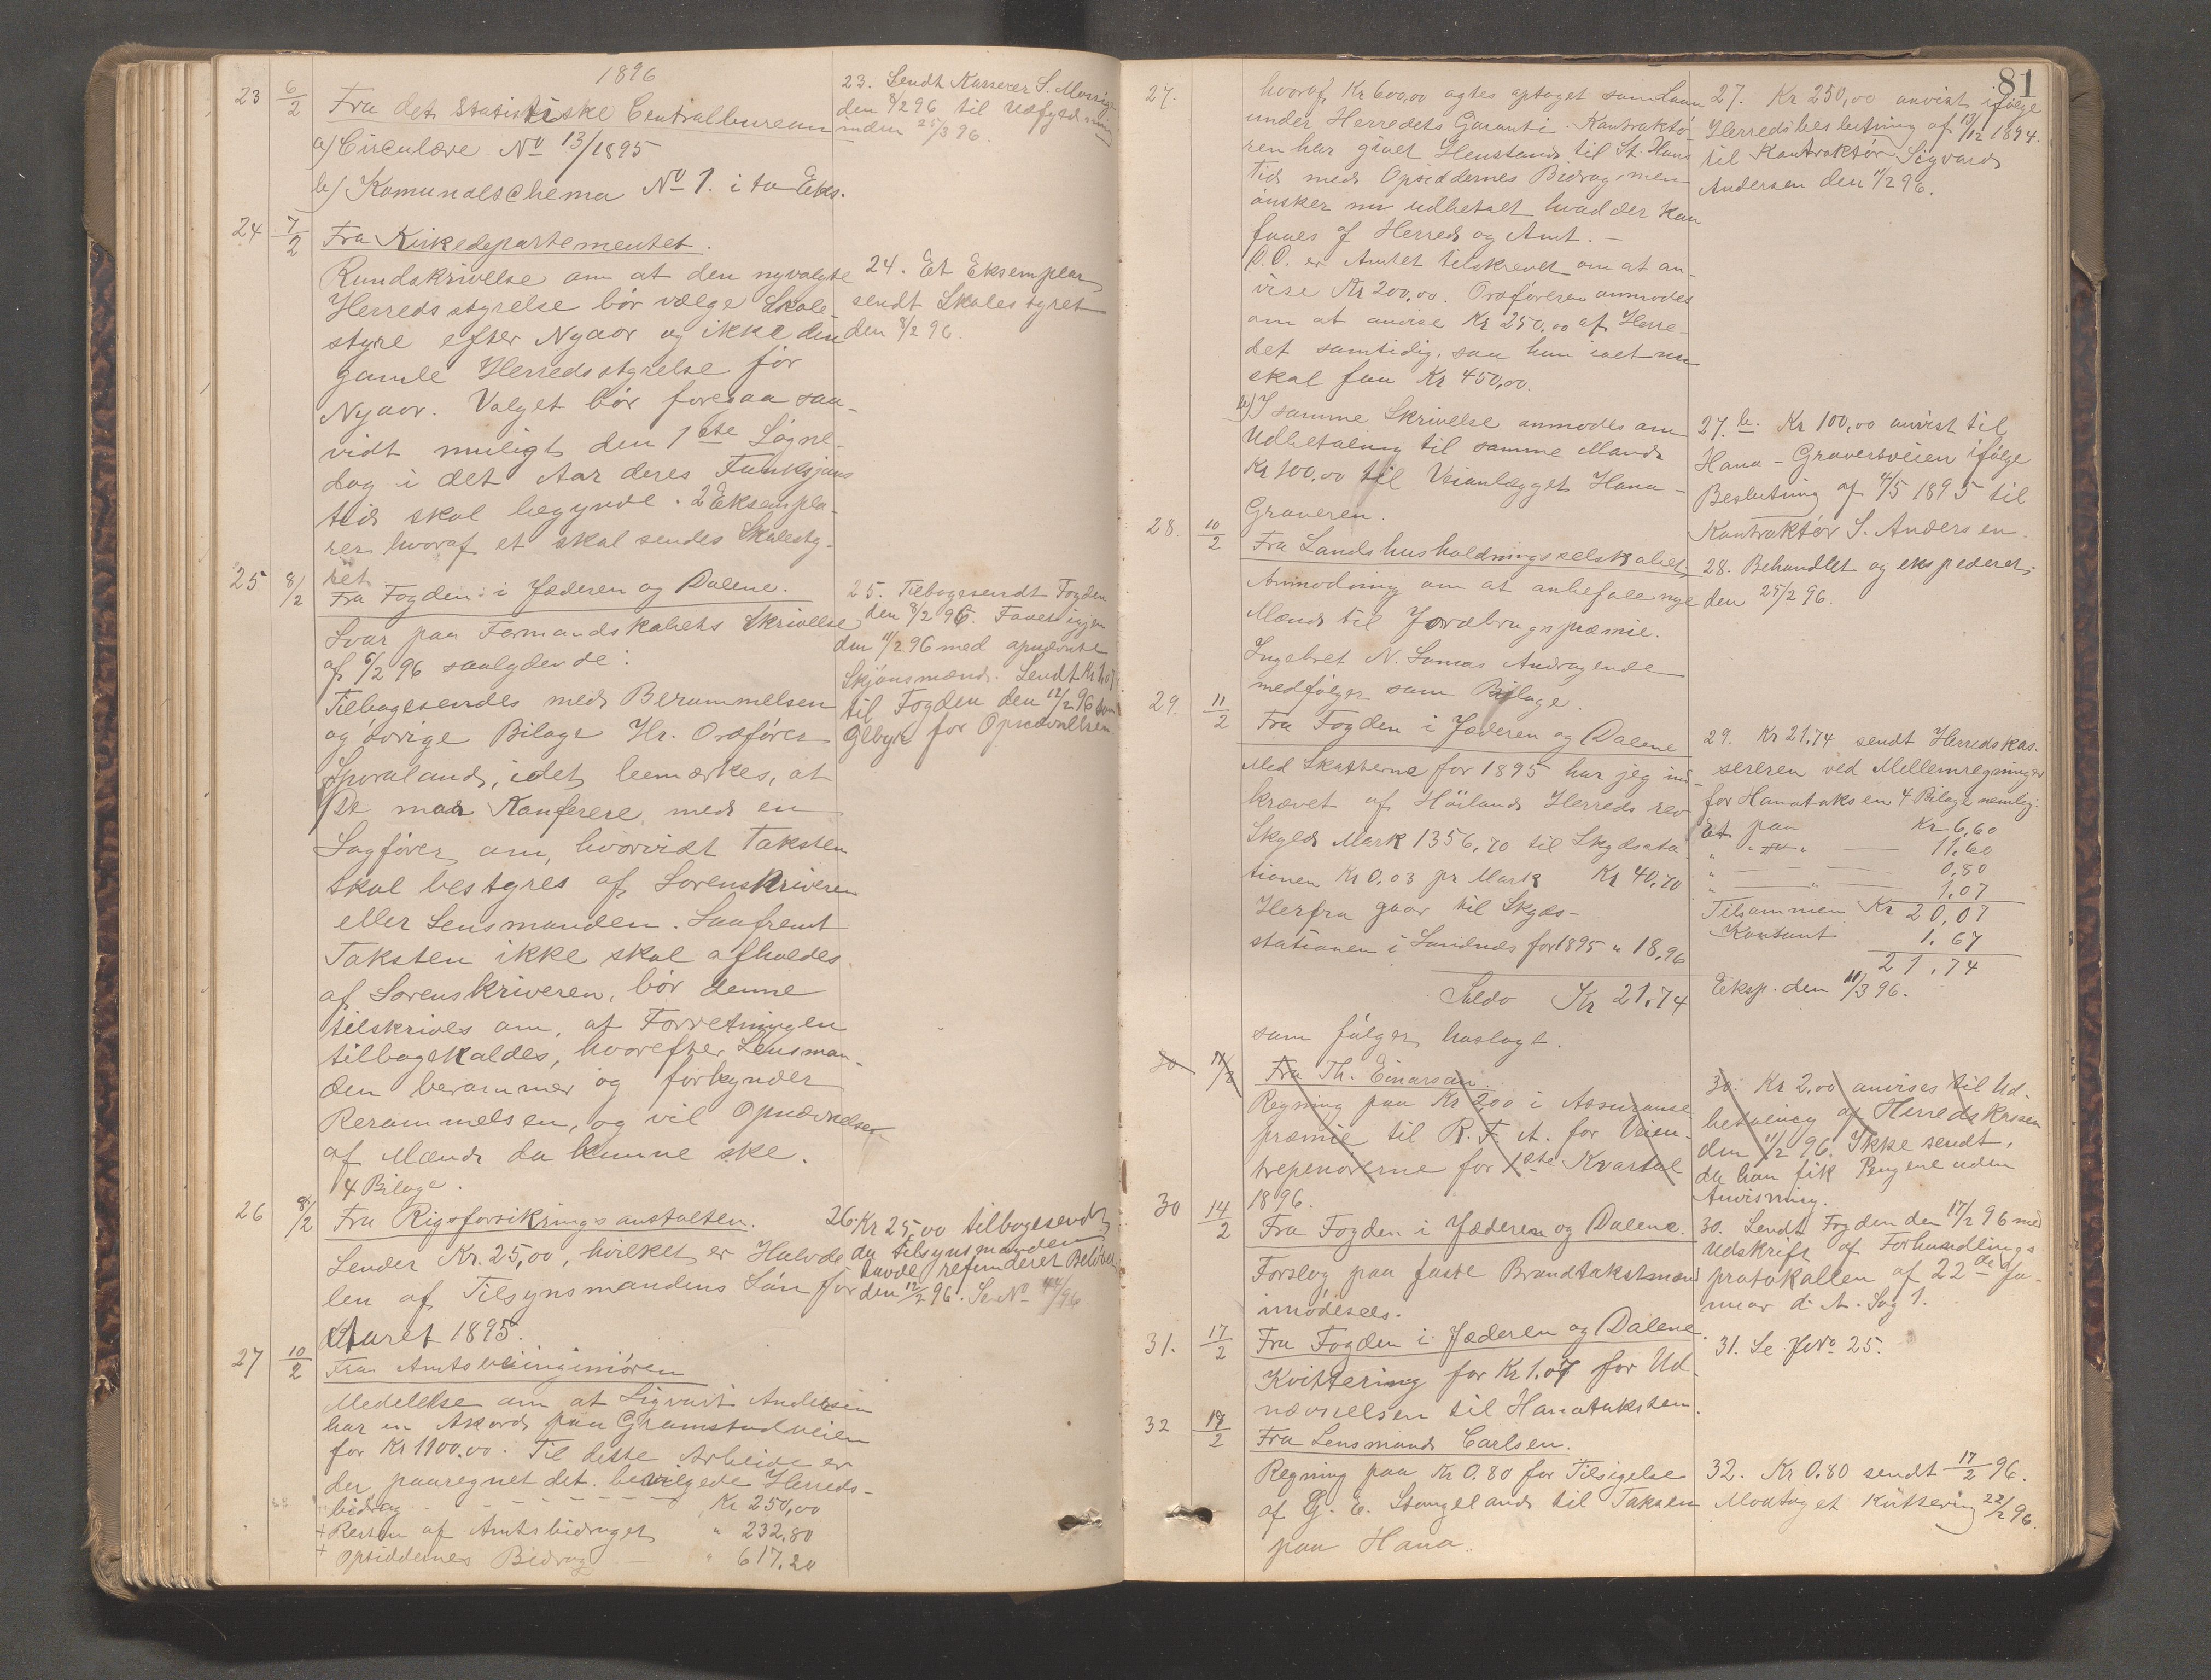 1896
23 6/2 Fra det Statistiske Centralbureau
a) Circulære No 13/1895
b) Komunalschema No 1. i to Eks.
23. Sendt Kasserer S.
den 8/2 96 til Udfyldning
inden 25/3 96.
24 7/2 Fra Kirkedepartementet.
Rundskrivelse om at den nyvalgte
Herredsstyrelse bör vælge Skole-
styre efter Nyaar og ikke den
gamle Herredsstyrelse før
Nyaar. Valget bör foregaa saa-
vidt muligt den 1ste Sögne-
dag i det Aar deres Funksjons
tid skal begynde. 2 Eksempla-
rer hvoraf et skal sendes Skolesty-
ret
24. Et Eksemplar
sendt Skolestyret
den 8/2 96.
25 8/2 Fra Fogden i Jæderen og Dalene.
Svar paa Formandskabets Skrivelse
af 6/2 96 saalydende:
Tilbagesendes med Berammelsen
og övrige Bilage Hr. Ordförer
Sporaland, idet bemærkes, at
De maa Konferere med en
Sagförer om, hvorvidt Taksten
skal bestyres af Sorenskriveren
eller Lensmanden. Saafremt
Taksten ikke skal afholdes
af Sorenskriveren, bör denne
tilskrives om, at Forretningen
tilbagekaldes, hvorefter Lensman-
den berammer og forkynder
Berammelsen, og vil Opnævnelsen
af Mænd da kunne ske.
4 Bilage.
25. Tilbagesendt Fogden
den 8/2 96. Faaet igjen
den 11/2 96 med opnævnte
Skjönsmænd. Sendt Kr 1,07
til Fogden den 12/2 96 som
Gebyr for Opnævnelsen
26 8/2 Fra Rigsforsikringsanstalten.
Sender Kr. 25,00, hvilket er Halvde
len af Tilsynsmandens Lön for
Aaret 1895.
26. Kr 25,00 tilbagesendt
da tilsynsmanden
havde refunderet Belöbet
den 12/2 96. Se No 44/96
27 10/2 Fra Amtsveiingeniören
Medelelse om at Sigvart Andersen
har en Akord paa Gramstadveien
for Kr 1100,00. Til dette Arbeide er
der paaregnet det bevilgede Herreds-
bidrag - - - - - - - Kr 250,00
+ Resten af Amtsbidraget " 232,80
+ Opsiddernes Bidrag — " 617,20
81
27. hvoraf Kr 600,00 agtes optaget som Laan
under Herredets Garanti. Kontraktö
ren har givet Henstand til St. Hans
Tid med Opsiddernes Bidrag, men
önsker nu udbetalt hvad der kan
faaes af Herred og Amt. —
D.D. er Amtet tilskrevet om at an-
vise Kr 200,00. Ordföreren anmodes
om at anvise Kr 250,00 af Herre-
det samtidig, saa han ialt nu
skal faa Kr 450,00.
b) I samme Skrivelse anmodes om
Udbetaling til samme Mand
Kr 100,00 til Veianlægget Hana-
Graveren.
27. Kr 250,00 anvist ifölge
Herredsbeslutning af 13/12 1894.
til Kontraktör Sigvard
Andersen den 11/2 96.
27. b. Kr 100,00 anvist til
Hana-Graversveien ifölge
Beslutning af 4/5 1895 til
Kontraktör S. Andersen.
28. 10/2 Fra Landshusholdningsselskabet,
Anmodning om at anbefale nye
Mænd til Jordbrugspræmie.
Ingebret N. Somas Andragende
medfölger som Bilage.
28. Behandlet og ekspederet
den 25/2 96.
29. 11/2 Fra Fogden i Jæderen og Dalene
Med Skatterne for 1895 har jeg ind
krævet af Höilands Herreds rev
Skyld Mark 1356,70 til Skydssta
tionen Kr 0,03 pr Mark Kr 40,70
Herfra gaar til Skyds-
stationen i Sandnæs for 1895 " 18,96
Saldo Kr 21,74
som fölger hoslagt.
29. Kr 21,74 sendt Herredskas-
sereren ved Mellemregninger
for Hanataksten 4 Bilage nemlig:
Et paa Kr 6,60
" " " — 11,60
" — — 0,80
" — " — 1,07
Tilsammen Kr 20,07
Kontant 1,67
21,74
Eksp. den 11/3 96.
30 11/2 Fra Th. Einarsen.
Regning paa Kr 2,00 i Assurance
præmie til R. F. A. for Veien-
trepenörerne for 1ste Kvartal
1896.
30. Kr 2,00 anvises til Ud-
betaling af Herredskassen
den 11/2 96. Ikke sendt,
da han fik Pengene uden
Anvisning.
30 14/2 Fra Fogden i Jæderen og Dalene.
Forslag paa faste Brandtakstmænd
imödesees.
30. Sendt Fogden den 17/2 96 med
Udskrift af Forhandlings
protokollen af 22de Ja-
nuar d. A. Sag 1.
31. 17/2 Fra Fogden i Jæderen og Dalene.
Kvittering for Kr 1.07 for Ud-
nævnelsen til Hanataksten.
31. Se JNo 25.
32 18/2 Fra Lensmand Carlsen.
Regning paa Kr 0.80 for Tilsigelse
af G. E. Stangeland til Taksten
paa Hana.
32. Kr 0.80 sendt 17/2 96.
Modtaget Kvittering 22/2 96.